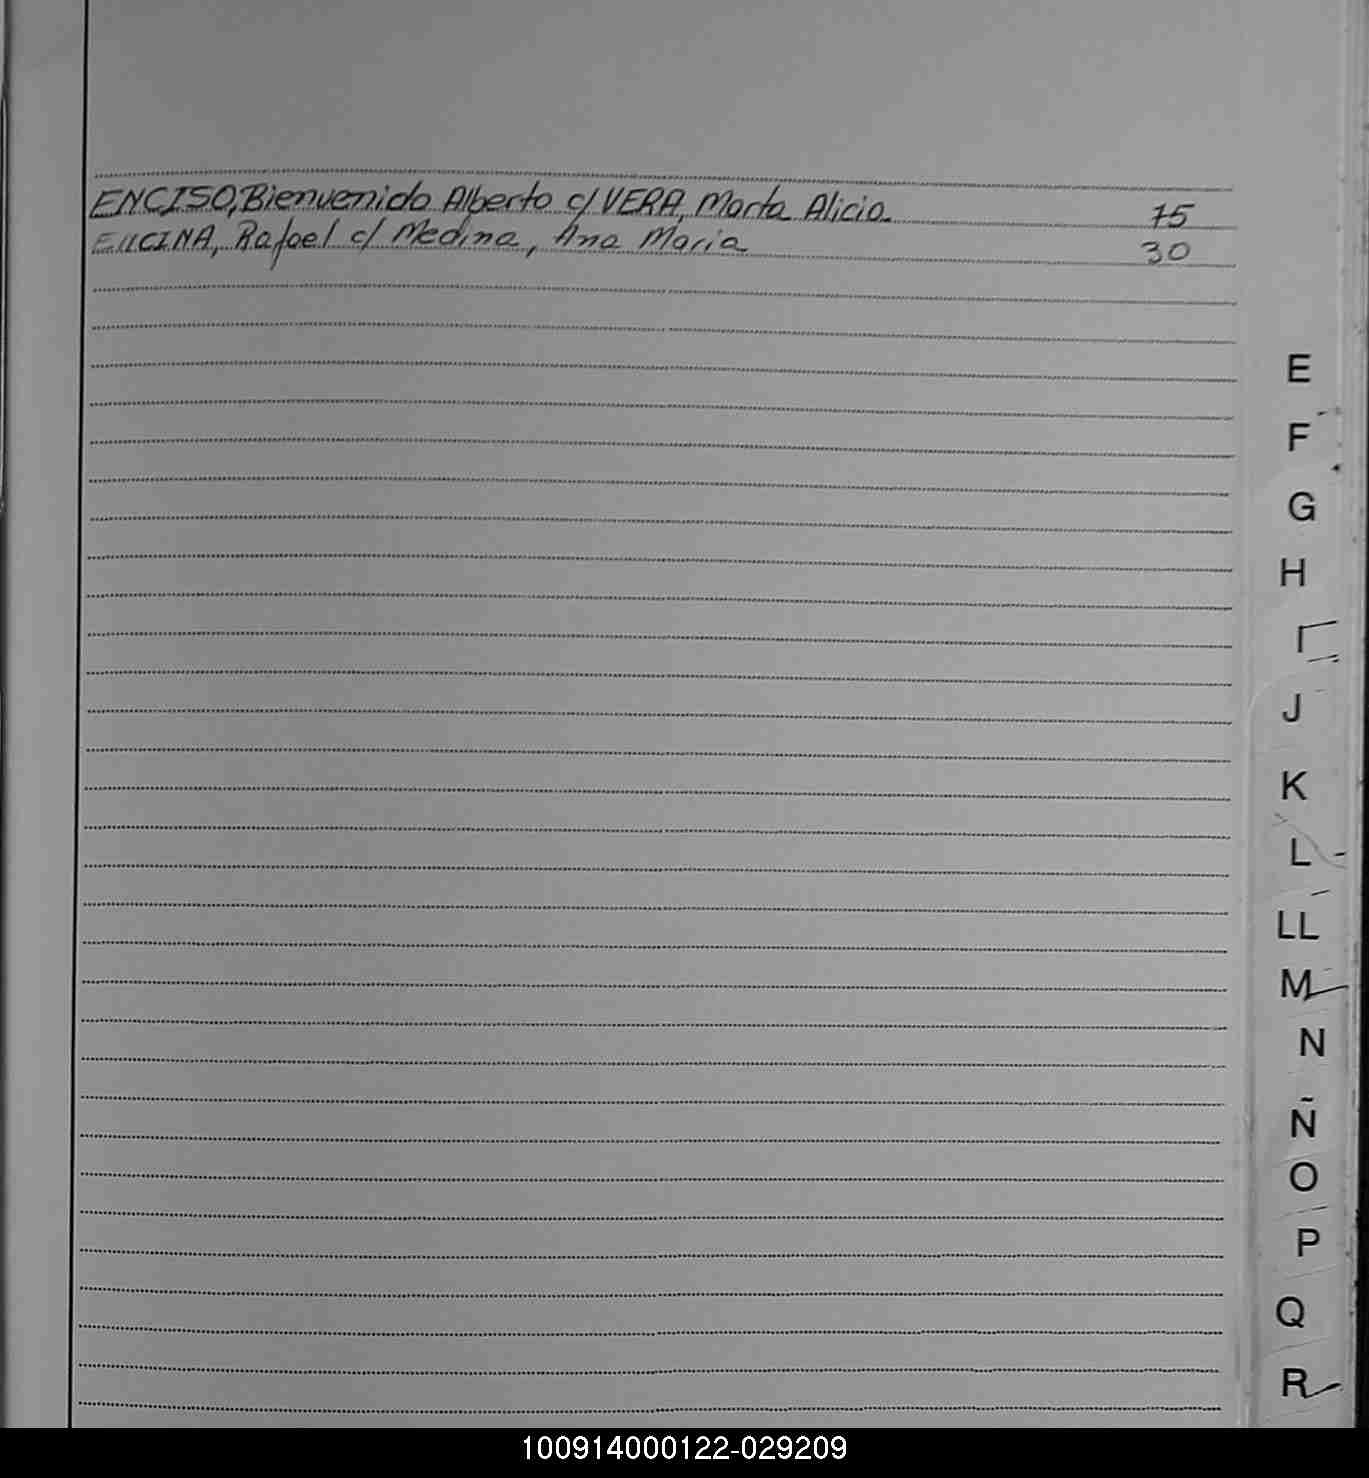 ENCISO, Bienvenido Alberto c/ VERA, Marta Alicia 15
ENCINA, Rafael c/ Medina, Ana Maria 30
E
F
G
H
I
J
K
L
LL
M
N
Ñ
O
P
Q
R
100914000122-029209